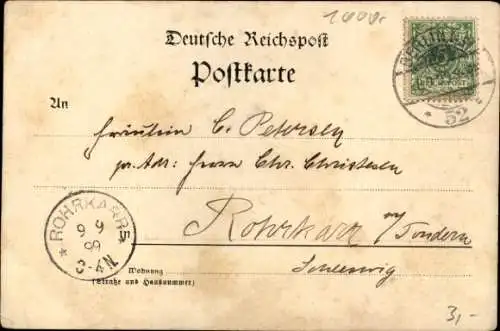 Deutsche Reichspost
Postkarte
An
Fräulein C. Petersen
pr. Adr: Herrn Chr. Christesen
Rohrkarr
b/ Tondern
Schleswig
Wohnung
(Straße und Hausnummer)
ROHRKARR
9 9
99
3-4N
BERLIN
52
3,-